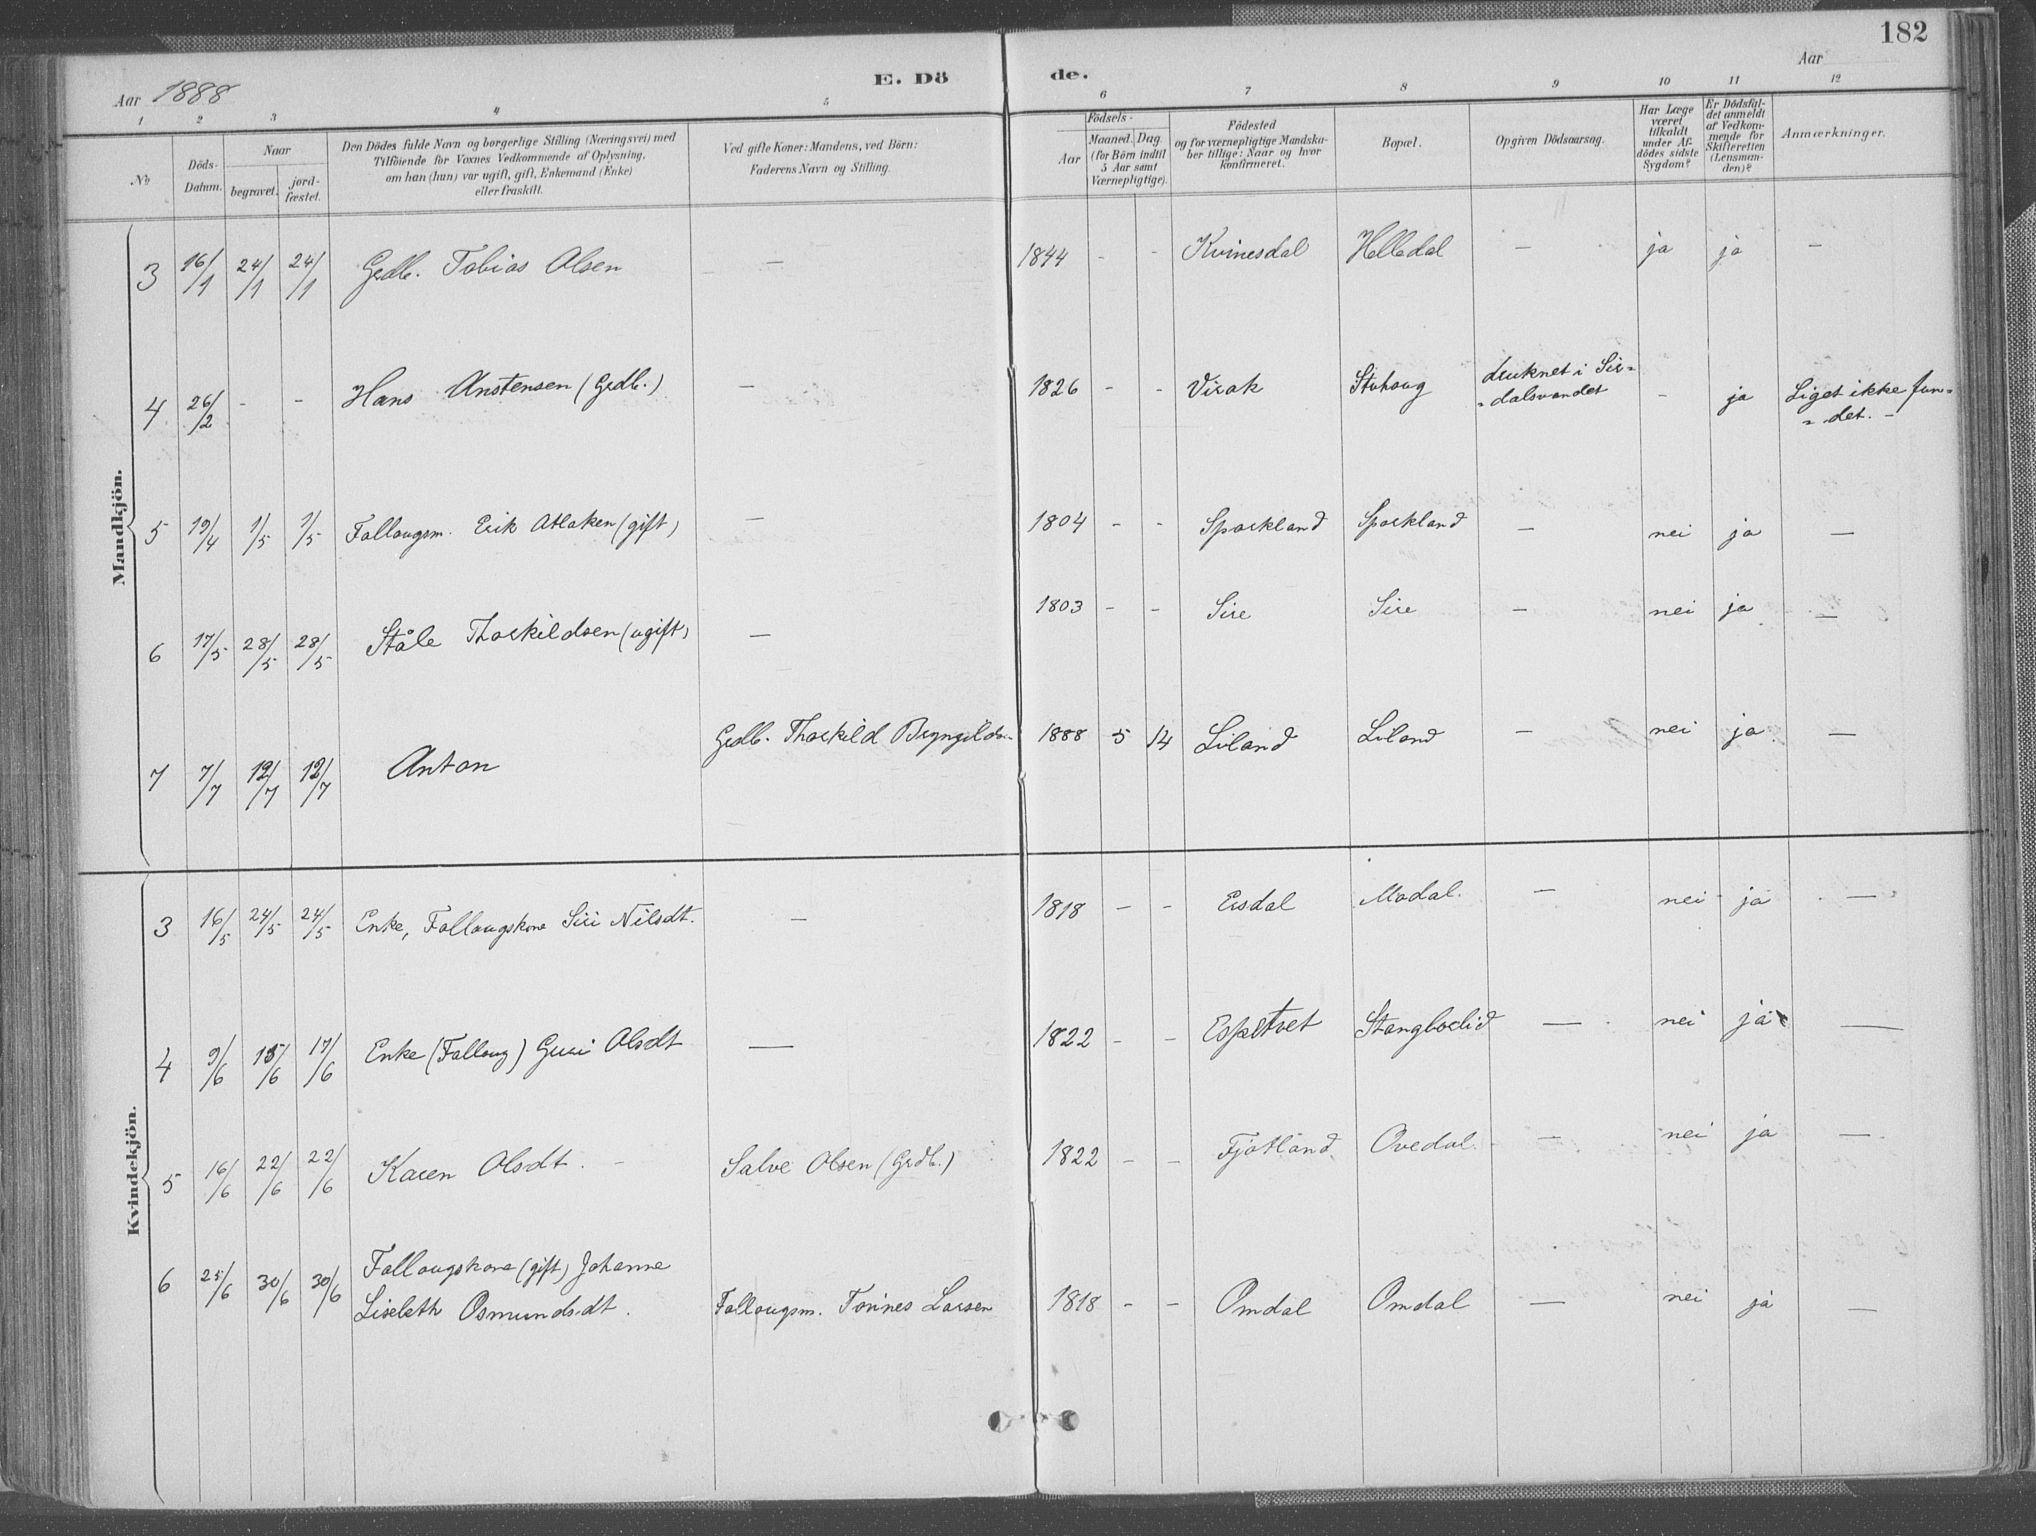 182
Aar 1888
E. Dö
de.
Aar
1 2 3 4 5 6 7 8 9 10 11 12
No
Döds-Datum.
Naar
begravet.
jord-fæstet.
Den Dödes fulde Navn og borgerlige Stilling (Næringsvei) med
Tilföiende for Voxnes Vedkommende af Oplysning,
om han (hun) var ugift, gift, Enkemand (Enke)
eller fraskilt.
Ved gifte Koner: Mandens, ved Börn:
Faderens Navn og Stilling.
Födsels-
Aar
Maaned. Dag
(for Börn indtil
5 Aar samt
Værnepligtige).
Födested
og for værnepligtige Mandska-
ber tillige: Naar og hvor
konfirmeret.
Bopæl.
Opgiven Dödsaarsag.
Har Læge
været
tilkaldt
under Af-
dödes sidste
Sygdom?
Er Dödsfal-
det anmeldt
af Vedkom-
mende for
Skifteretten
(Lensman-
den)?
Anmærkninger.
Mandkjön.
3 16/1 24/1 24/1 Grdb. Tobias Olsen — 1844 - - Kvinesdal Helledal — ja ja —
4 26/2 - - Hans Anstensen (Grdb.) — 1826 - - Virak Stuhaug druknet i Sir=
=dalsvandet - ja Liget ikke fun=
=det. —
5 19/4 1/5 1/5 Follaugsm. Erik Atlaken (gift) — 1804 - - Sporkland Sporkland — nei ja —
6 17/5 28/5 28/5 Ståle Thorkildsen (ugift) — 1803 - - Sire Sire — nei ja —
7 7/7 12/7 12/7 Anton Grdb. Thorkild Bryngilds. 1888 5 14 Liland Liland — nei ja —
Kvindekjön.
3 16/5 24/5 24/5 Enke, Follaugskone Siri Nilsdt. — 1818 - - Ersdal Modal. — nei ja —
4 9/6 15/6 17/6 Enke (Follaug) Guri Olsdt — 1822 - - Espetvet Stangborlid — nei ja —
5 16/6 22/6 22/6 Karen Olsdt. — Salve Olsen (Grdb.) 1822 - - Fjotland Ovedal. — nei ja —
6 25/6 30/6 30/6 Follaugskone (gift) Johanne
Liseleth Osmundsdt. Follaugsm. Tønnes Larsen 1818 - - Omdal Omdal — nei ja —